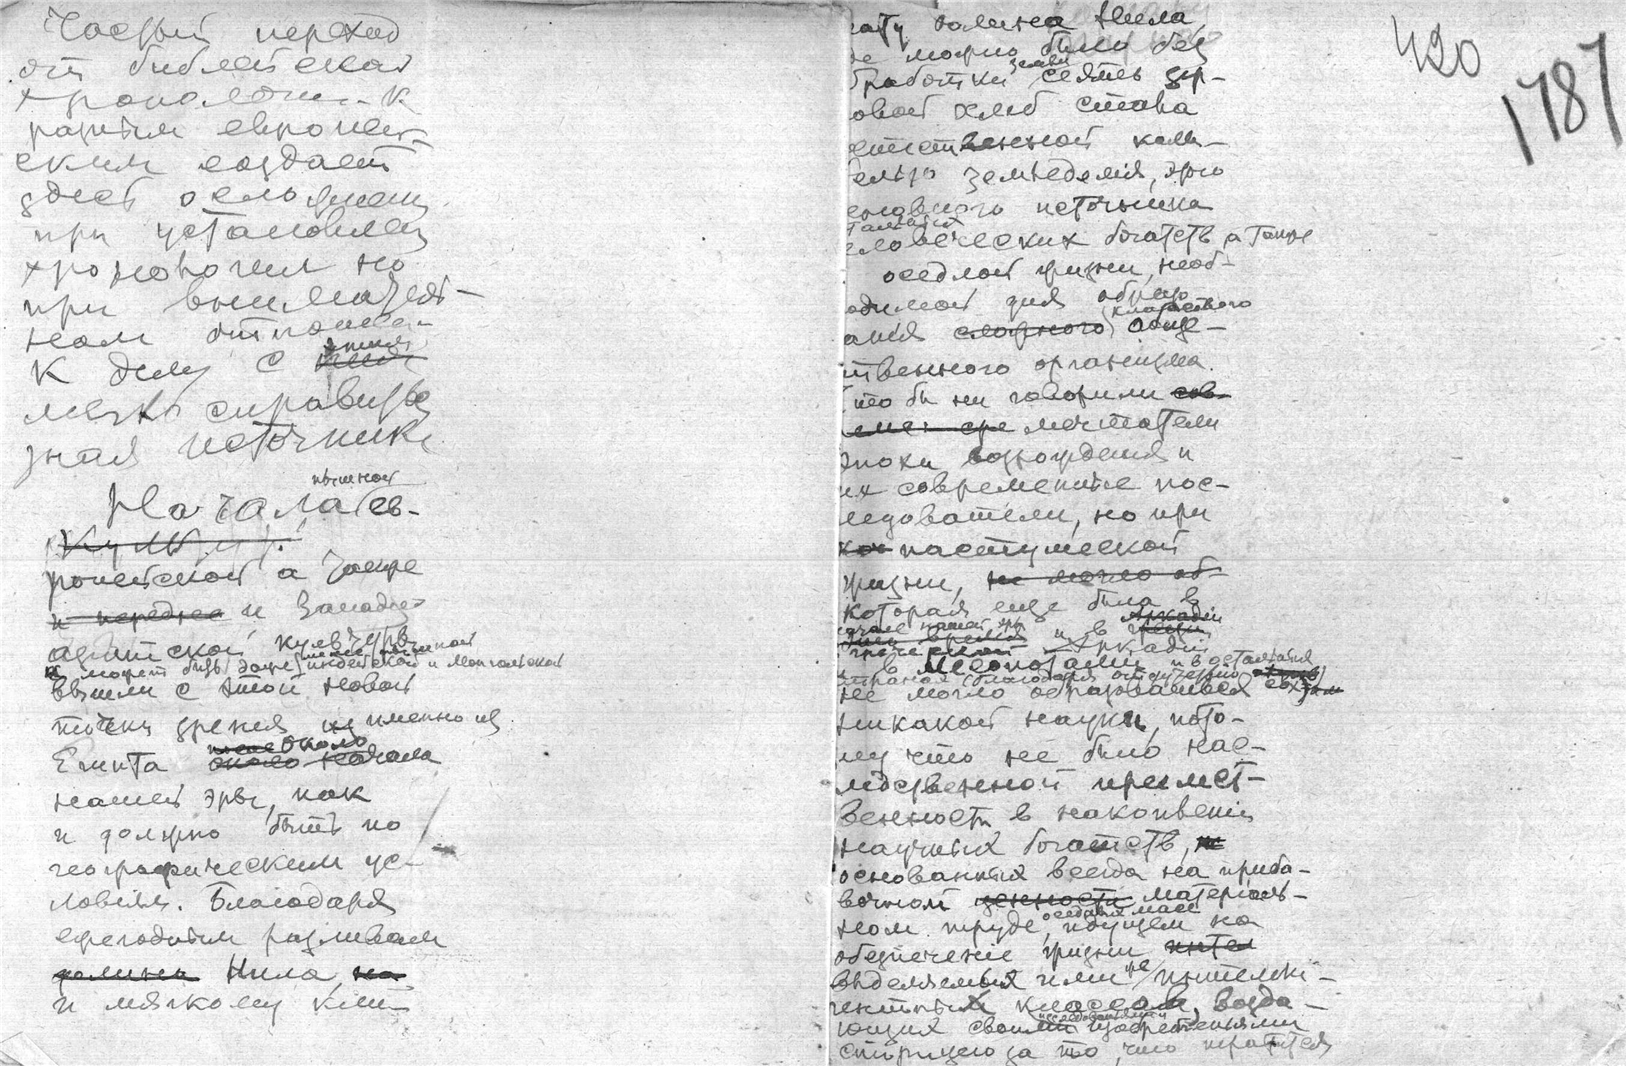 Частый переход
от библейской
хронологии к
разным европей-
ским создает
здесь осложнения
при установлении
хронологии но
при вниматель-
ном отношении
к делу с этим
легко справиться
зная источники
Начала ев-
пышной
ропейской а также
и переднее и Западно-
азиатской культуры
может быть даже индейской и монгольской
вышли с этой новой
точки зрения из именно из
Египта около начала
нашей эры, как
и должно быть по
географическим ус-
ловиям. Благодаря
ежегодным разливам
долины Нила, на
и мягкому кли-
420
1787
мату долина Нила
где можно было без
обработки земли сеять яр-
овой хлеб стала
естественной колы-
белью земледелия, этого
основного источника
человеческих богатств а также
оседлой жизни, необ-
ходимой для образо-
вания сложного классового обще-
ственного организма.
Что бы ни говорили сов-
мечтатели
эпохи возрождения и
их современные пос-
ледователи, но при
пастушеской
жизни, не могло об-
которая еще была в
начале нашей эры и в Аркадии
в Месопотамии и в остальных
странах благодаря
не могло образоваться
никакой науки, пото-
му что не было нас-
ледственной преемст-
венности в накоплении
научных богатств,
основанных всегда на приба-
вочном ценности материаль-
ном труде, оседлых масс идущем на
обеспечение жизни интел
выделяемых ими же интелли-
гентных классов, возда-
ющих своими исследованиями изобретениями
сторицею за то, что тратится